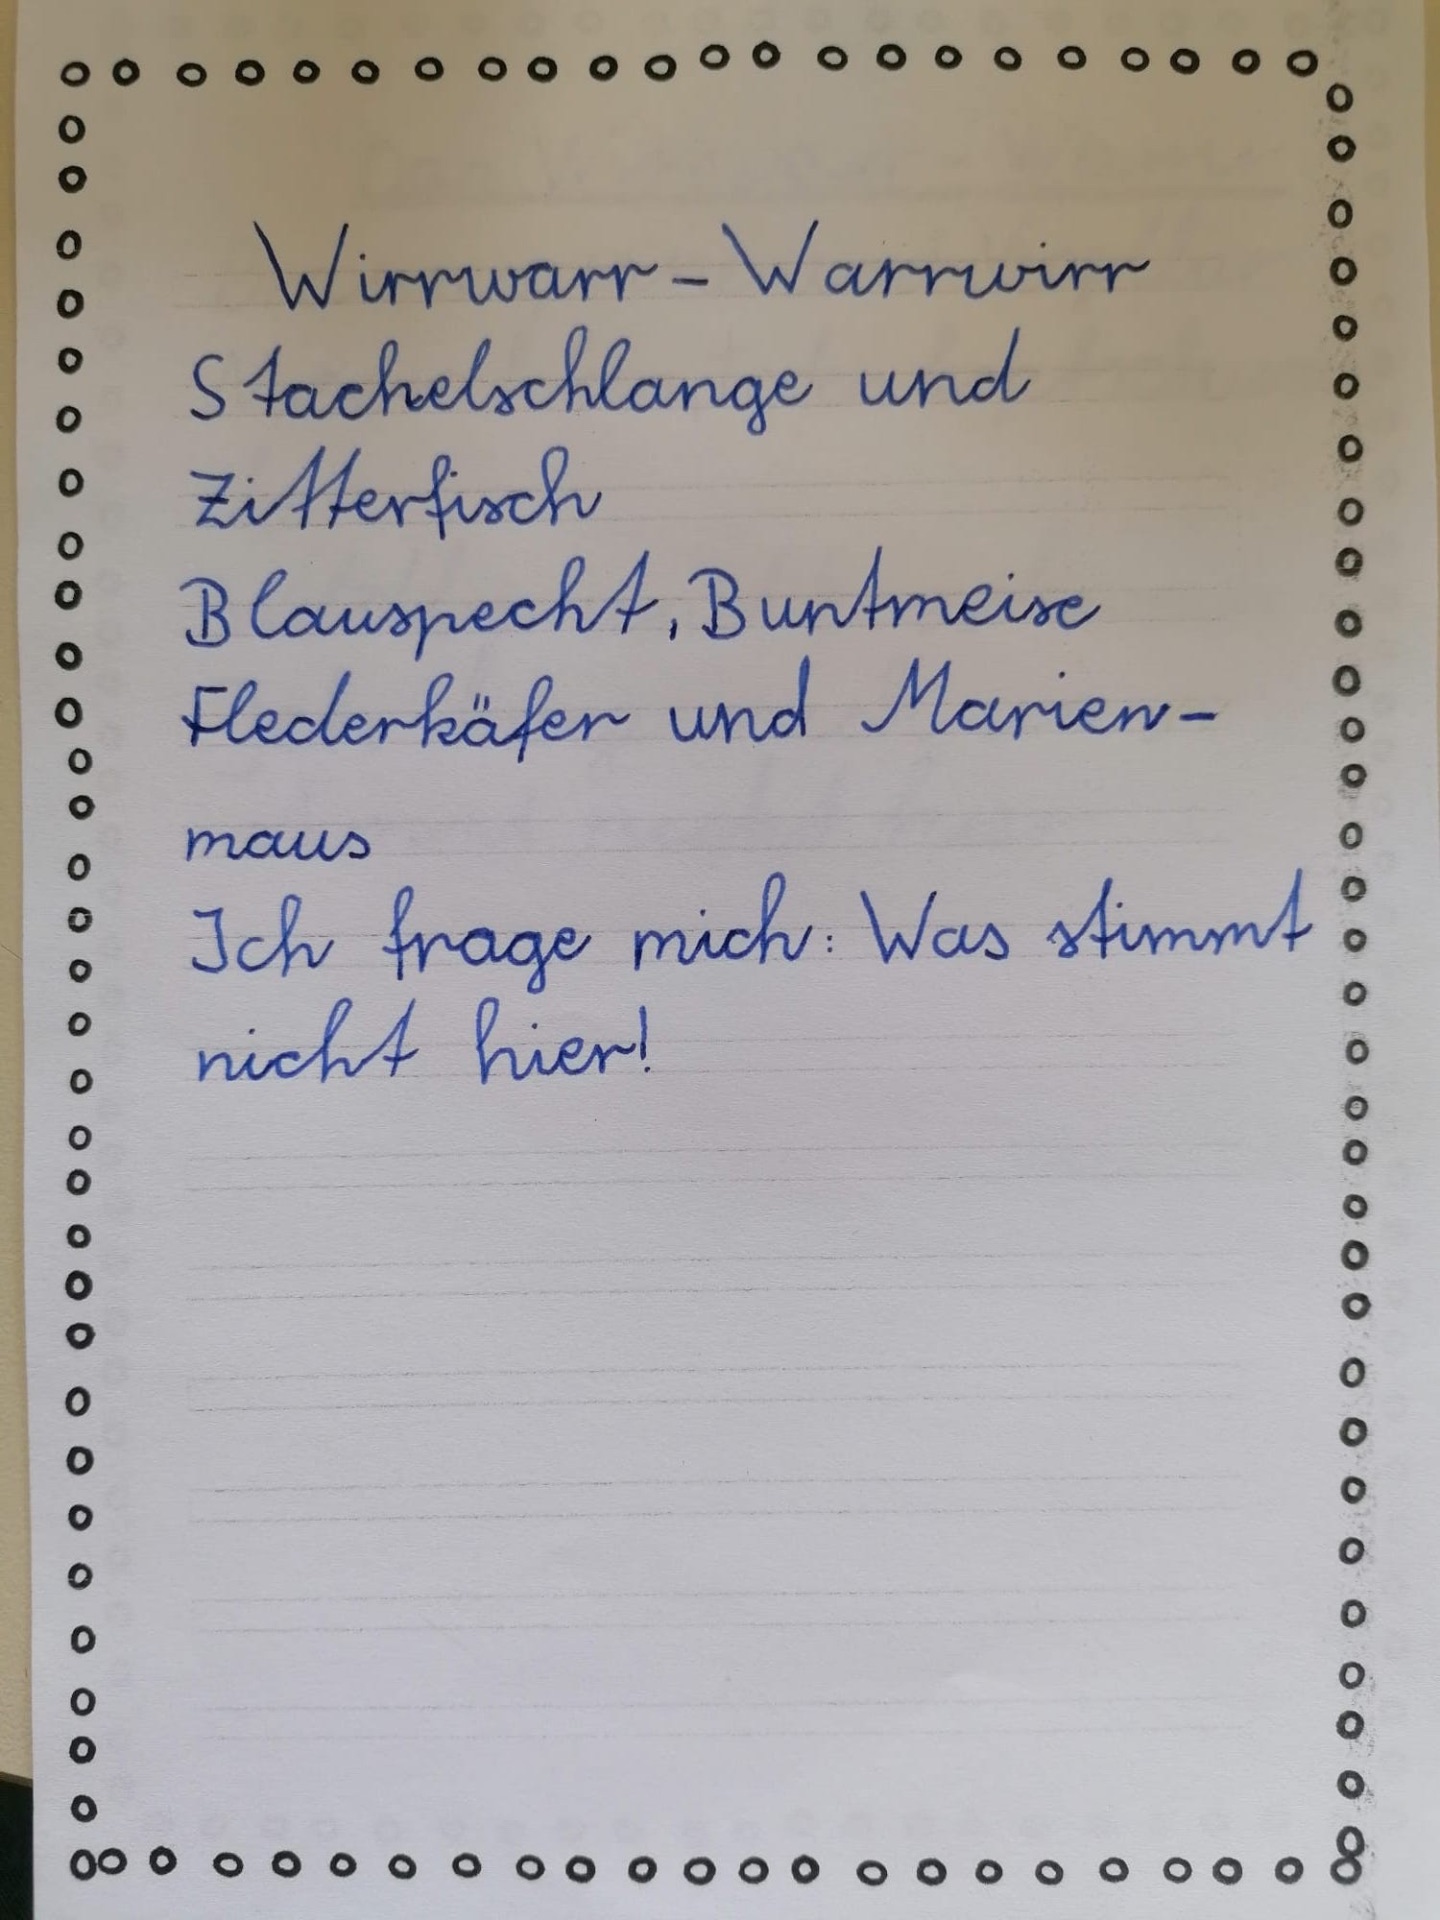 Wirrwarr - Warrwirr
Stachelschlange und
Zitterfisch
Blauspecht, Buntmeise
Flederkäfer und Marien-
maus
Ich frage mich: Was stimmt
nicht hier!